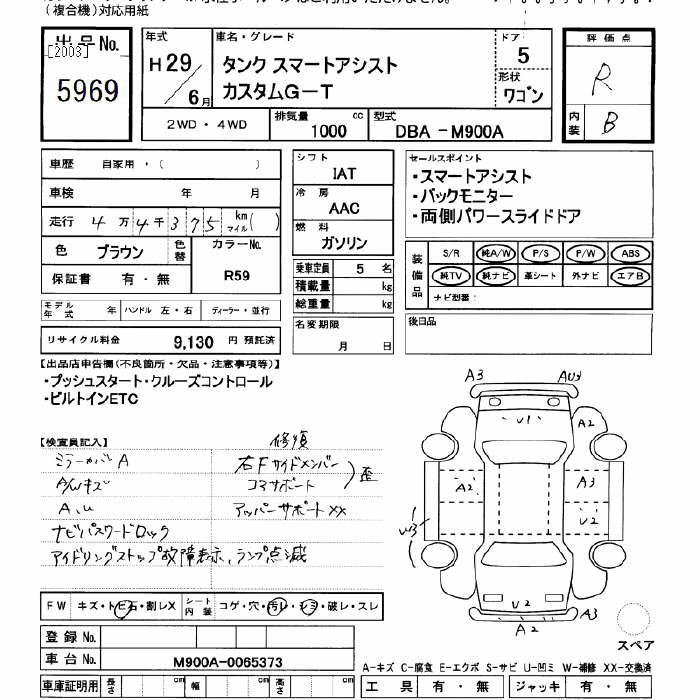 (複合機)対応用紙
出品No.
[2003]
5969
年式
H29/6月
車名・グレード
タンク スマートアシスト
カスタムG-T
ドア
5
形状
ワゴン
2WD・4WD
排気量
1000 cc
型式
DBA - M900A
評価点
R
内装
B
車歴 自家用・( )
車検 年 月
走行 4万4千375 km マイル( )
色 ブラウン 色替 カラーNo.
R59
保証書 有・無
モデル年式 年 ハンドル 左・右 ディーラー・並行
リサイクル料金 9,130 円 預託済
シフト
IAT
冷房
AAC
燃料
ガソリン
乗車定員 5 名
積載量 kg
総重量 kg
名変期限
月 日
セールスポイント
・スマートアシスト
・バックモニター
・両側パワースライドドア
装備品
S/R 純A/W P/S P/W ABS
純TV 純ナビ 革シート 外ナビ エアB
ナビ型番:
後日品
【出品店申告欄(不良箇所・欠品・注意事項等)】
・プッシュスタート・クルーズコントロール
・ビルトインETC
【検査員記入】
修復
ミラーカバーA 右Fサイドメンバー
A/Wキズ コアサポート 歪
A、U アッパーサポートXX
ナビパスワードロック
アイドリングストップ故障表示、ランプ点滅
A3
AU4
U1
A2
A2
A3
U2
W3
U2
A2
A3
スペア
FW キズ・トビ石・割レX シート内装 コゲ・穴・汚レ・シミ・破レ・スレ
登録No.
車台No. M900A-0065373
車庫証明用 長さ cm 幅 cm 高さ cm
A-キズ C-腐食 E-エクボ S-サビ U-凹ミ W-補修 XX-交換済
工具 有・無 ジャッキ 有・無